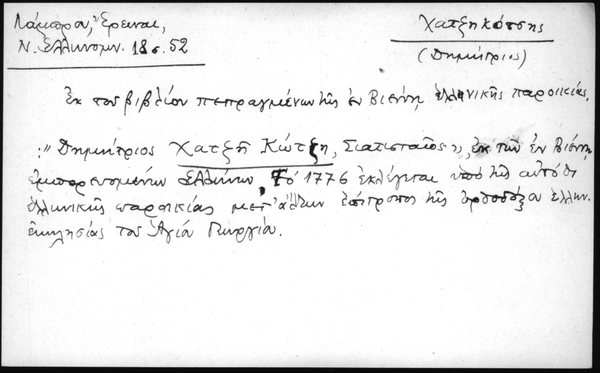 Λάμπρου, Ἔρευναι,
Ν. Ἑλληνομν. 18 σ. 52
Χατζηκώτσης
(Δημήτριος)
Ἐκ του βιβλίου πεπραγμένων τῆς ἐν Βιέννη ἑλληνικῆς παροικίας.
:" Δημήτριος Χατζῆ Κώτζη, Σιατισταῖος", ἐκ τῶν ἐν Βιέννη
ἐμπορευομένων Ἑλλήνων, Τὸ 1776 ἐκλέγεται ὑπὸ τῆς αὐτόθι
ἑλληνικῆς παροικίας μετ' ἄλλων ἐπίτροπος τῆς ὀρθοδόξου ἑλλην.
ἐκκλησίας του Ἁγίου Γεωργίου.